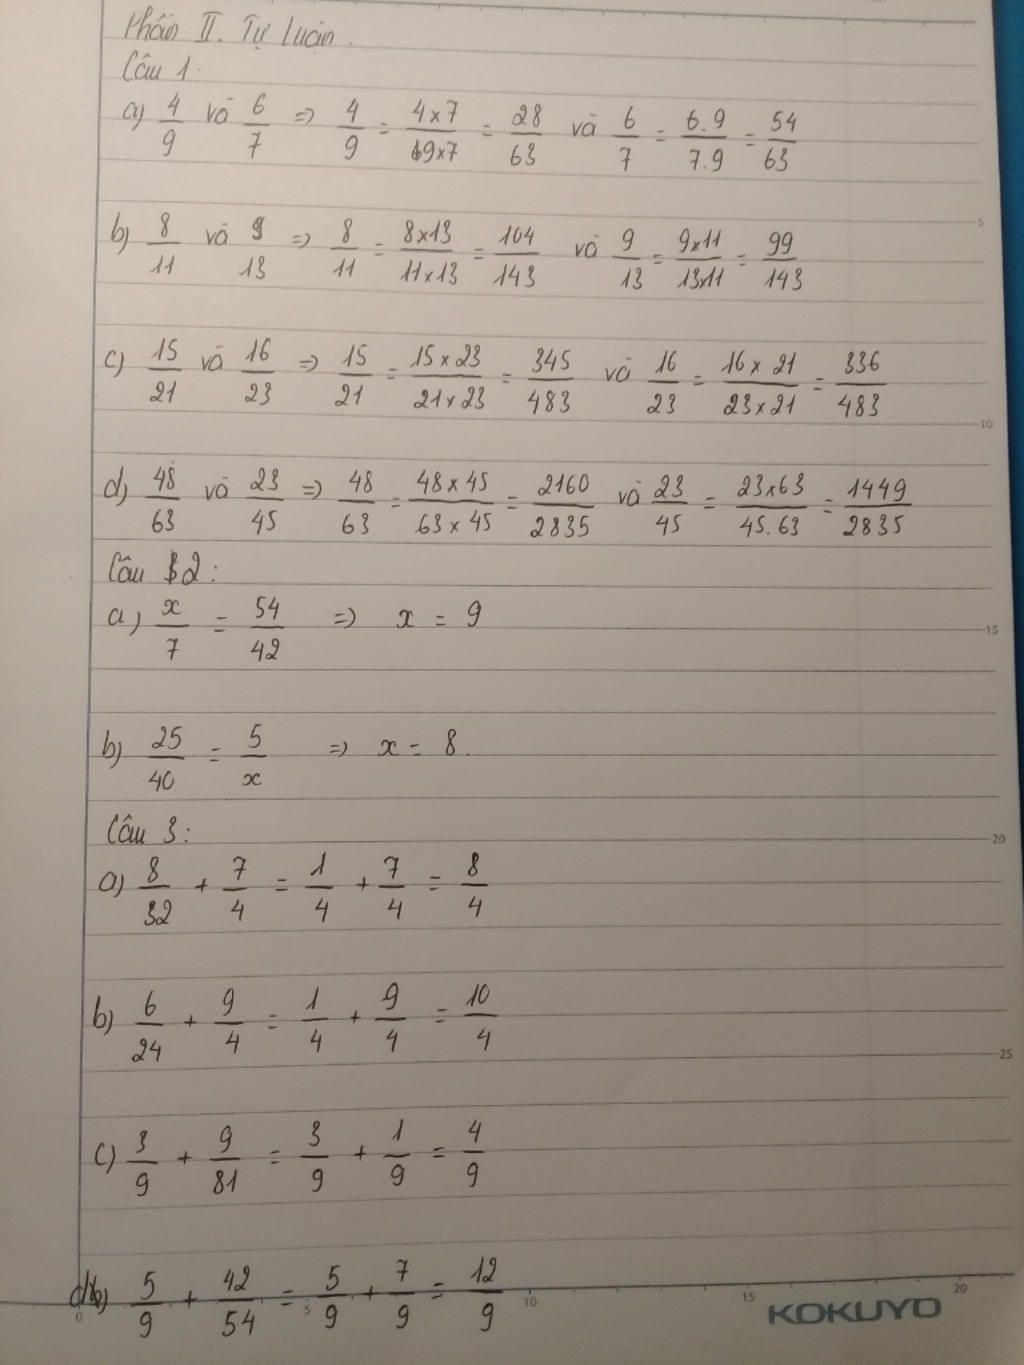 Phần II. Tự Luận.
Câu 1.
a) 4/9 và 6/7 => 4/9 = 4x7/9x7 = 28/63 và 6/7 = 6.9/7.9 = 54/63
b) 8/11 và 9/13 => 8/11 = 8x13/11x13 = 104/143 và 9/13 = 9x11/13x11 = 99/143
5
c) 15/21 và 16/23 => 15/21 = 15x23/21x23 = 345/483 và 16/23 = 16x21/23x21 = 336/483
10
d) 48/63 và 23/45 => 48/63 = 48x45/63x45 = 2160/2835 và 23/45 = 23x63/45.63 = 1449/2835
Câu 2:
a) x/7 = 54/42 => x = 9
15
b) 25/40 = 5/x => x = 8.
Câu 3:
20
a) 8/32 + 7/4 = 1/4 + 7/4 = 8/4
b) 6/24 + 9/4 = 1/4 + 9/4 = 10/4
25
c) 3/9 + 9/81 = 3/9 + 1/9 = 4/9
d) 5/9 + 42/54 = 5/9 + 7/9 = 12/9
0 5 10 15 20
KOKUYO